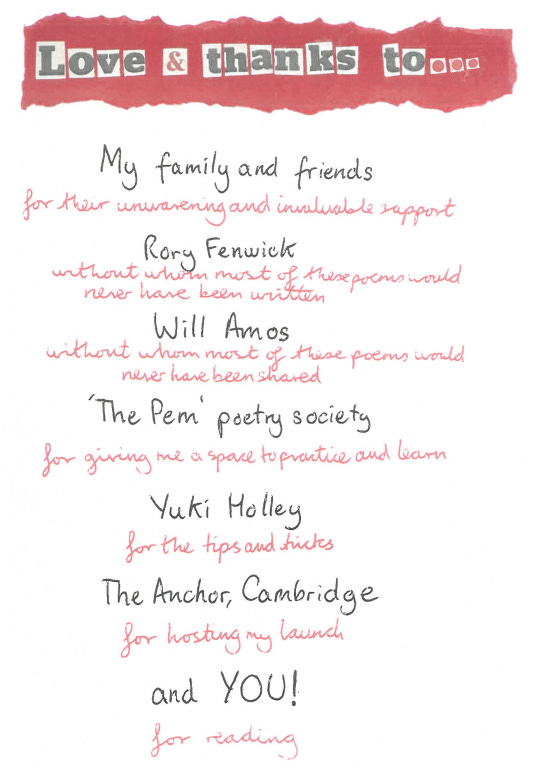 Love & thanks to...
My family and friends
for their unwavering and invaluable support
Rory Fenwick
without whom most of these poems would
never have been written
Will Amos
without whom most of these poems would
never have been shared
'The Pem' poetry society
for giving me a space to practice and learn
Yuki Holley
for the tips and tricks
The Anchor, Cambridge
for hosting my launch
and YOU!
for reading